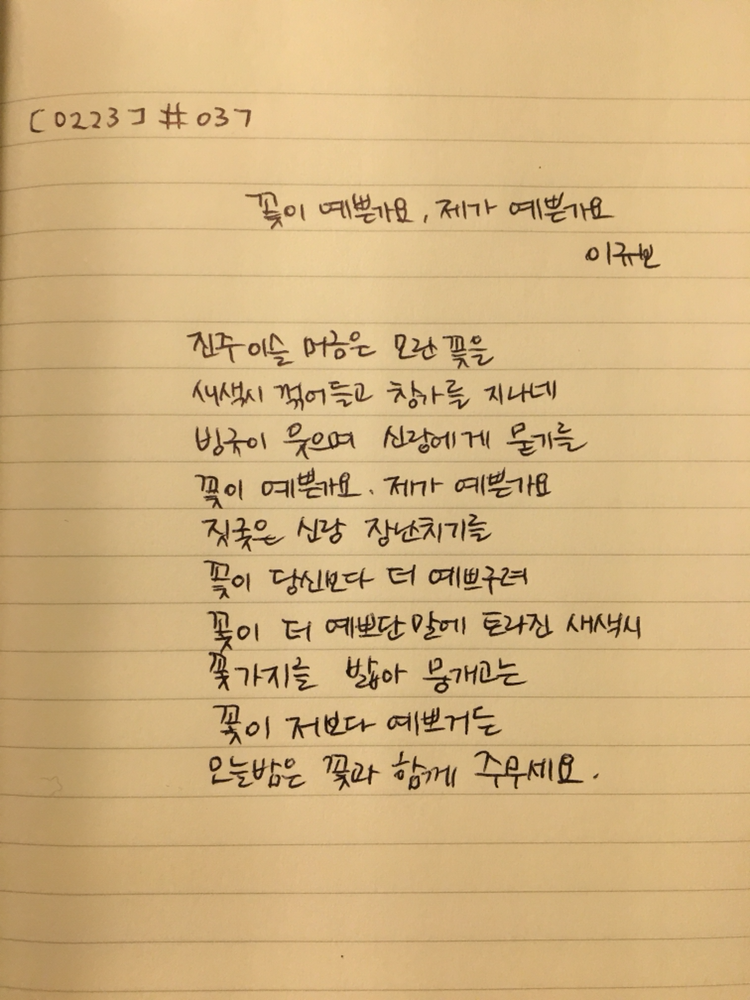 [0223] #037
꽃이 예쁜가요, 제가 예쁜가요
이규보
진주이슬 머금은 모란꽃을
새색시 꺾어들고 창가를 지나네
빙긋이 웃으며 신랑에게 묻기를
꽃이 예쁜가요, 제가 예쁜가요
짓궂은 신랑 장난치기를
꽃이 당신보다 더 예쁘구려
꽃이 더 예쁘단 말에 토라진 새색시
꽃가지를 밟아 뭉개고는
꽃이 저보다 예쁘거든
오늘밤은 꽃과 함께 주무세요.